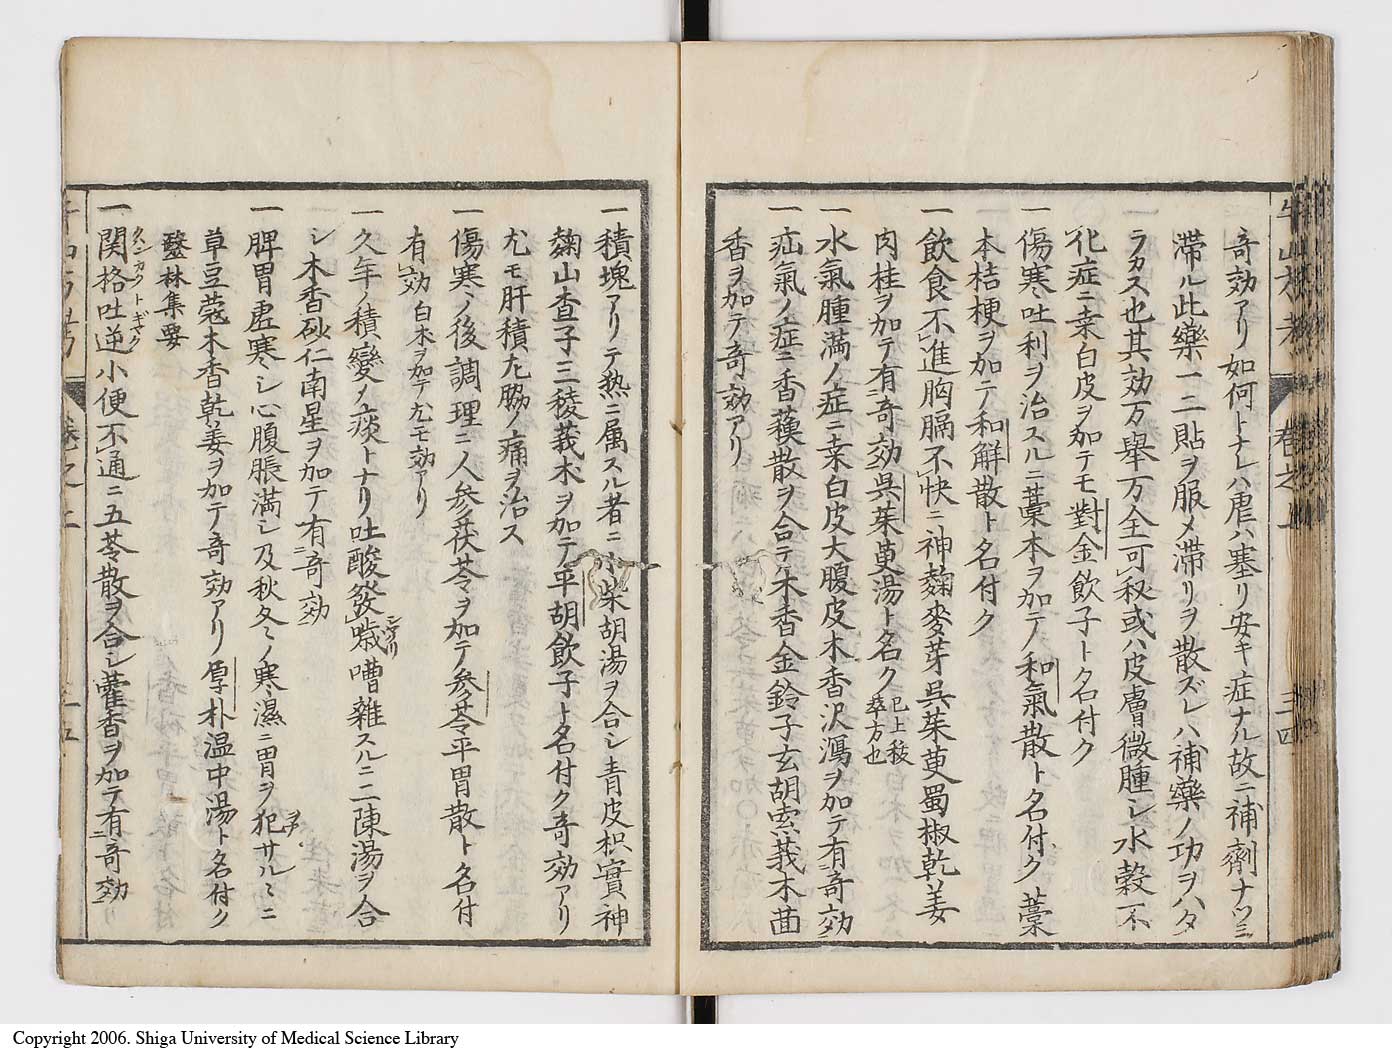 奇効アリ如何トナレハ虚ハ塞リ安キ症ナル故ニ補劑ナツミ
滞ル此藥一二貼ヲ服メ滞リヲ散ズレハ補藥ノ功ヲハタ
ラカス也其効万舉万全可秘或ハ皮膚微腫シ水穀不
化症ニ桒白皮ヲ加テモ對金飲子ト名付ク
一傷寒吐利ヲ治スルニ藁本ヲ加テ和氣散ト名付ク藁
本桔梗ヲ加テ和解散ト名付ク
一飲食不進胸膈不快ニ神麹麥芽呉茱萸蜀椒乾姜
肉桂ヲ加テ有奇効呉茱萸湯ト名ク已上袖
蘂方也
一水氣腫満ノ症ニ桒白皮大腹皮木香沢瀉ヲ加テ有奇効
一疝氣ノ症ニ香蘓散ヲ合テ木香金鈴子玄胡索莪木茴
香ヲ加テ奇効アリ
牛山方考
卷之一
三四
一積塊アリテ熱ニ属スル者ニ小柴胡湯ヲ合シ青皮枳實神
麹山査子三稜莪木ヲ加テ平胡飲子ト名付ク奇効アリ
尤モ肝積左脇ノ痛ヲ治ス
一傷寒ノ後調理ニ人参茯苓ヲ加テ参苓平胃散ト名付
有効白木ヲ加テ尤モ効アリ
一久年ノ積變メ痰トナリ吐酸発噦嘈雜スルニ二陳湯ヲ合
シ木香砂仁南星ヲ加テ有奇効
一脾胃虚寒シ心腹脹満シ及秋冬ノ寒濕ニ胃ヲ犯サルヽニ
草豆蔻木香乾姜ヲ加テ奇効アリ厚朴温中湯ト名付ク
醫林集要
一関格吐逆小便不通ニ五苓散ヲ合シ藿香ヲ加テ有奇効
クハンカクトギャク